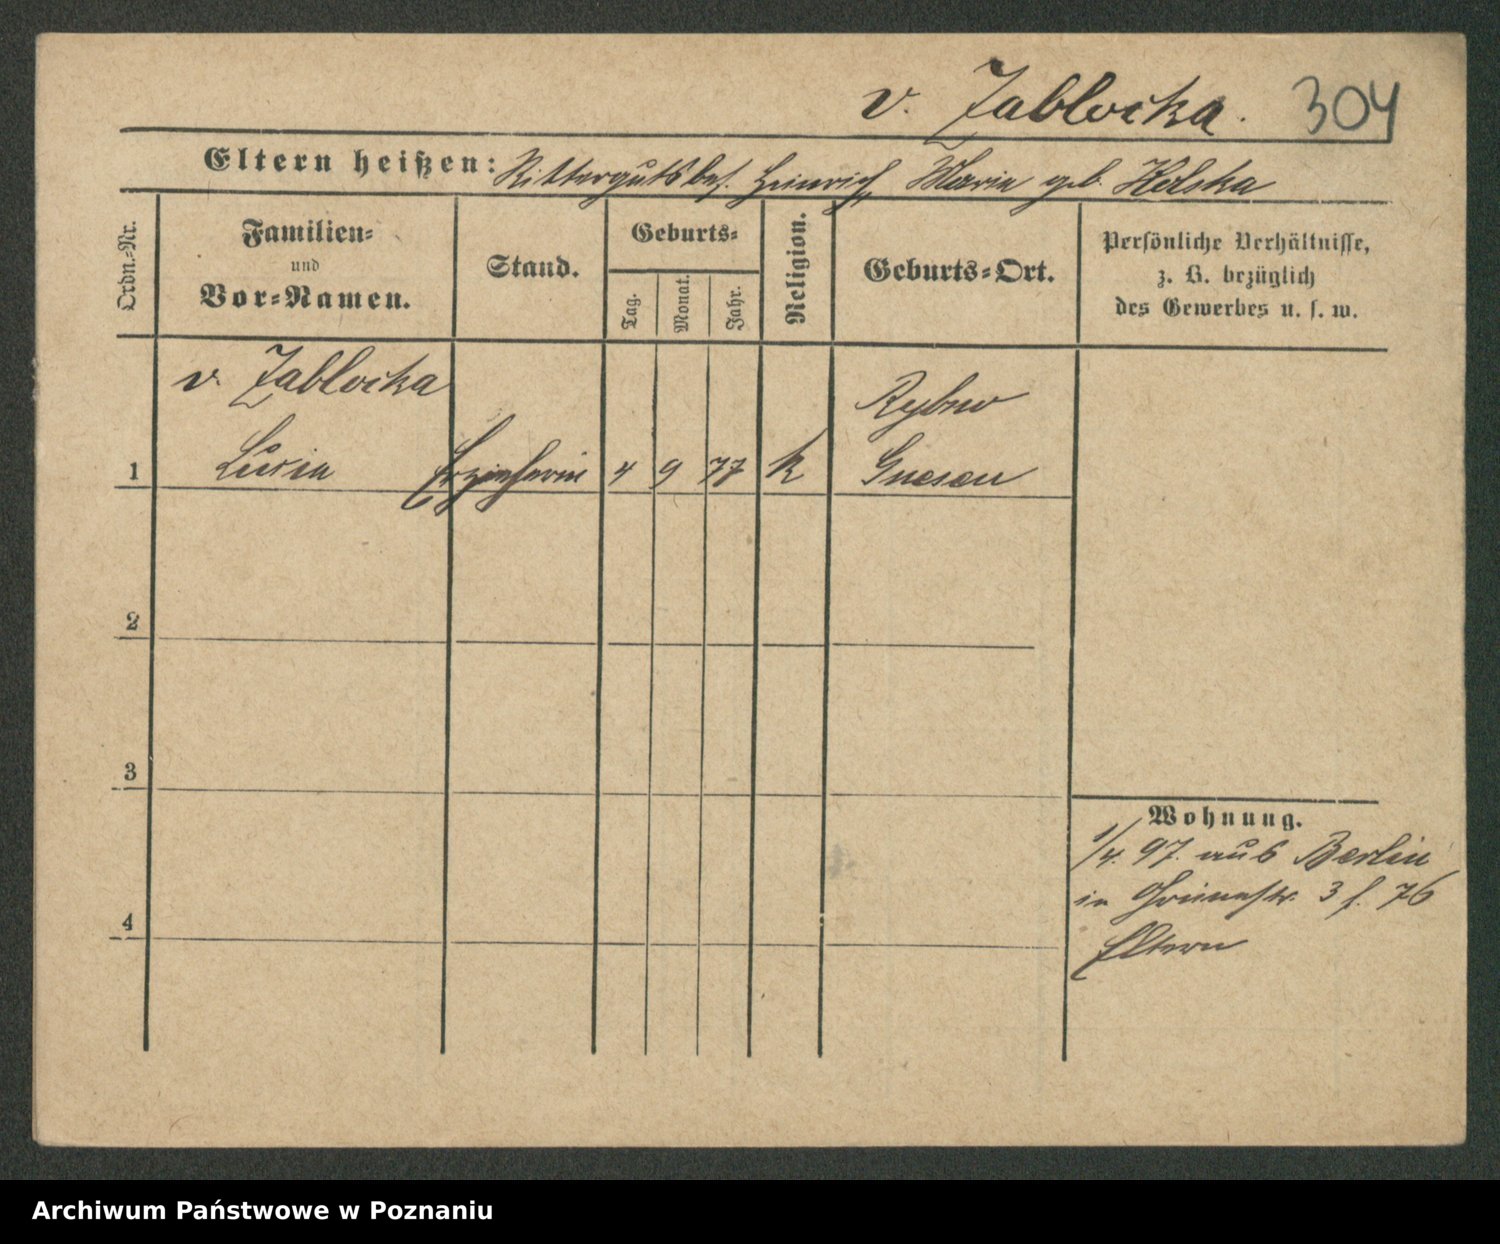 v. Zablocka. 304
Eltern heißen: Rittergutsbes. Heinrich, Maria geb. Kolska
Ordn.-Nr.
Familien-
und
Vor-Namen.
Stand.
Geburts-
Tag.
Monat.
Jahr.
Religion.
Geburts-Ort.
Persönliche Verhältnisse,
z. B. bezüglich
des Gewerbes u. s. w.
v. Zablocka Rybno
1 Lucia Erzieherin 4 9 77 k Gnesen
2
3
4
Wohnung.
1/4. 97. aus Berlin
in Grünestr. 3 f. 76
Eltern
Archiwum Państwowe w Poznaniu